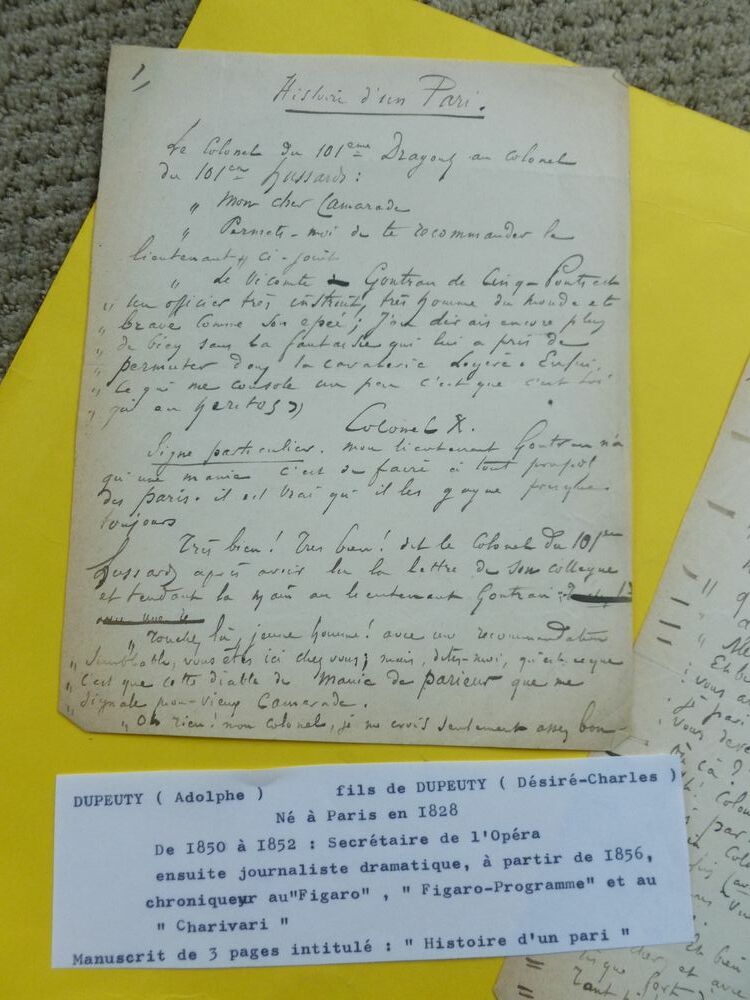 1/
Histoire d'un Pari.
Le Colonel du 101eme Dragons au colonel
du 101eme hussards :
" Mon cher Camarade
" Permets-moi de te recommander le
lieutenant ci-joint
" Le Vicomte de Gontran de Cinq-Ponts est
" un officier très instruit, très homme du monde et
" brave comme son epée ; J'en dirais encore plus
" de bien sans la fantaisie qui lui a pris de
" permuter dans la cavalerie légère. Enfin,
" ce qui me console un peu c'est que c'est toi
" qui en herites »
Colonel X.
Signe particulier. mon lieutenant Gontran n'a
qu'une manie c'est de faire à tout propos
des paris. il est vrai qu'il les gagne presque
toujours
Très bien ! Très bien ! dit le Colonel du 101eme
hussards après avoir lu la lettre de son collègue
et tendant la main au lieutenant Gontran
" Touchez là, jeune homme ! avec une recommandation
" semblable, vous êtes ici chez vous ; mais, dites-moi, qu'est-ce que
" c'est que cette diable de manie de parieur que me
" signale mon vieux Camarade.
" Oh rien ! mon colonel, je me crois seulement assez bon
DUPEUTY ( Adolphe ) fils de DUPEUTY ( Désiré-Charles )
Né à Paris en I828
De I850 à I852 : Secrétaire de l'Opéra
ensuite journaliste dramatique, à partir de I856,
chroniqueur au"Figaro" , " Figaro-Programme" et au
" Charivari "
Manuscrit de 3 pages intitulé : " Histoire d'un pari "